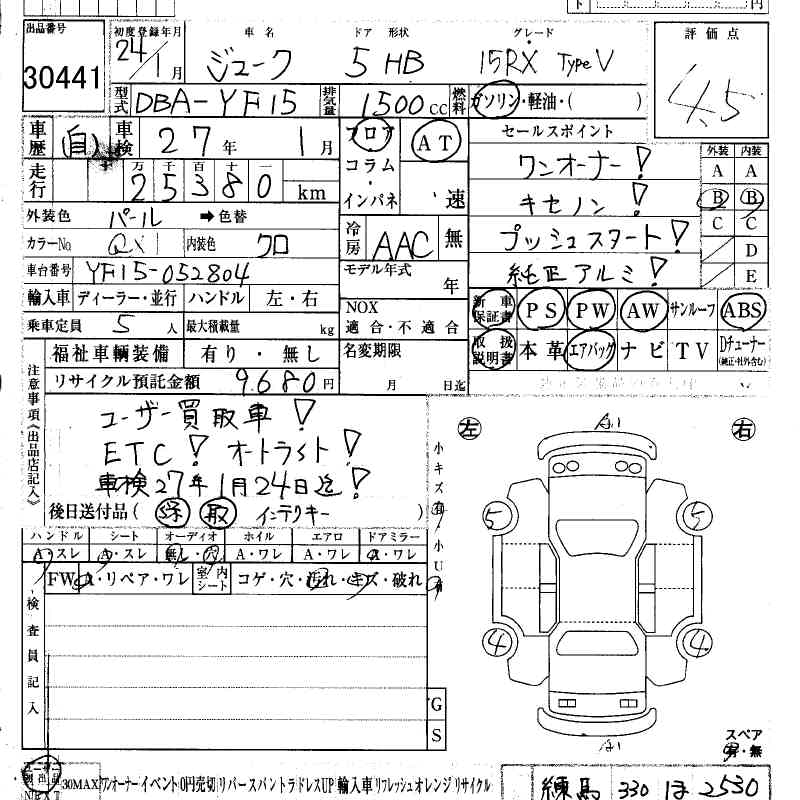 円
出品番号
30441
初度登録年月 24/1月
車名 ジューク
ドア 形状 5 HB
グレード 15RX Type V
評価点 4.5
型式 DBA-YF15
排気量 1500cc
燃料 ガソリン・軽油・( )
車歴 自
車検 27年 1月
フロア・コラム・インパネ
AT
速
セールスポイント
ワンオーナー!
キセノン!
プッシュスタート!
純正アルミ!
外装 内装
A A
B B
C C
D
E
走行 万 千 百 十 一
25380 km
外装色 パール ➡色替
カラーNo. QX1 内装色 クロ
冷房 AAC 無
車台番号 YF15-052804
モデル年式 年
輸入車 ディーラー・並行 ハンドル 左・右
NOX 適合・不適合
乗車定員 5人 最大積載量 kg
新車保証書 PS PW AW サンルーフ ABS
取扱説明書 本革 エアバッグ ナビ TV Dチューナー(純正・社外含む)
福祉車輌装備 有り・無し
名変期限 月 日迄
リサイクル預託金額 9.680円
注意事項《出品店記入》
ユーザー買取車!
ETC! オートライト!
車検27年1月24日迄!
後日送付品( 保 取 インテリキー )
左 右
A1
小キズ 小U
ハンドル シート オーディオ ホイル エアロ ドアミラー
A・スレ A・スレ 無し・穴 A・ワレ A・ワレ A・ワレ
FW A・リペア・ワレ 室内シート コゲ・穴・汚れ・キズ・破れ
検査員記入
5 5
4 4
A1
G
S
スペア
有・無
ユーザー買出品 NEXT 30MAX ワンオーナー イベント 0円売切 リバース バントラ ドレスUP 輸入車 リフレッシュ オレンジ リサイクル
練馬 330 ほ 2530